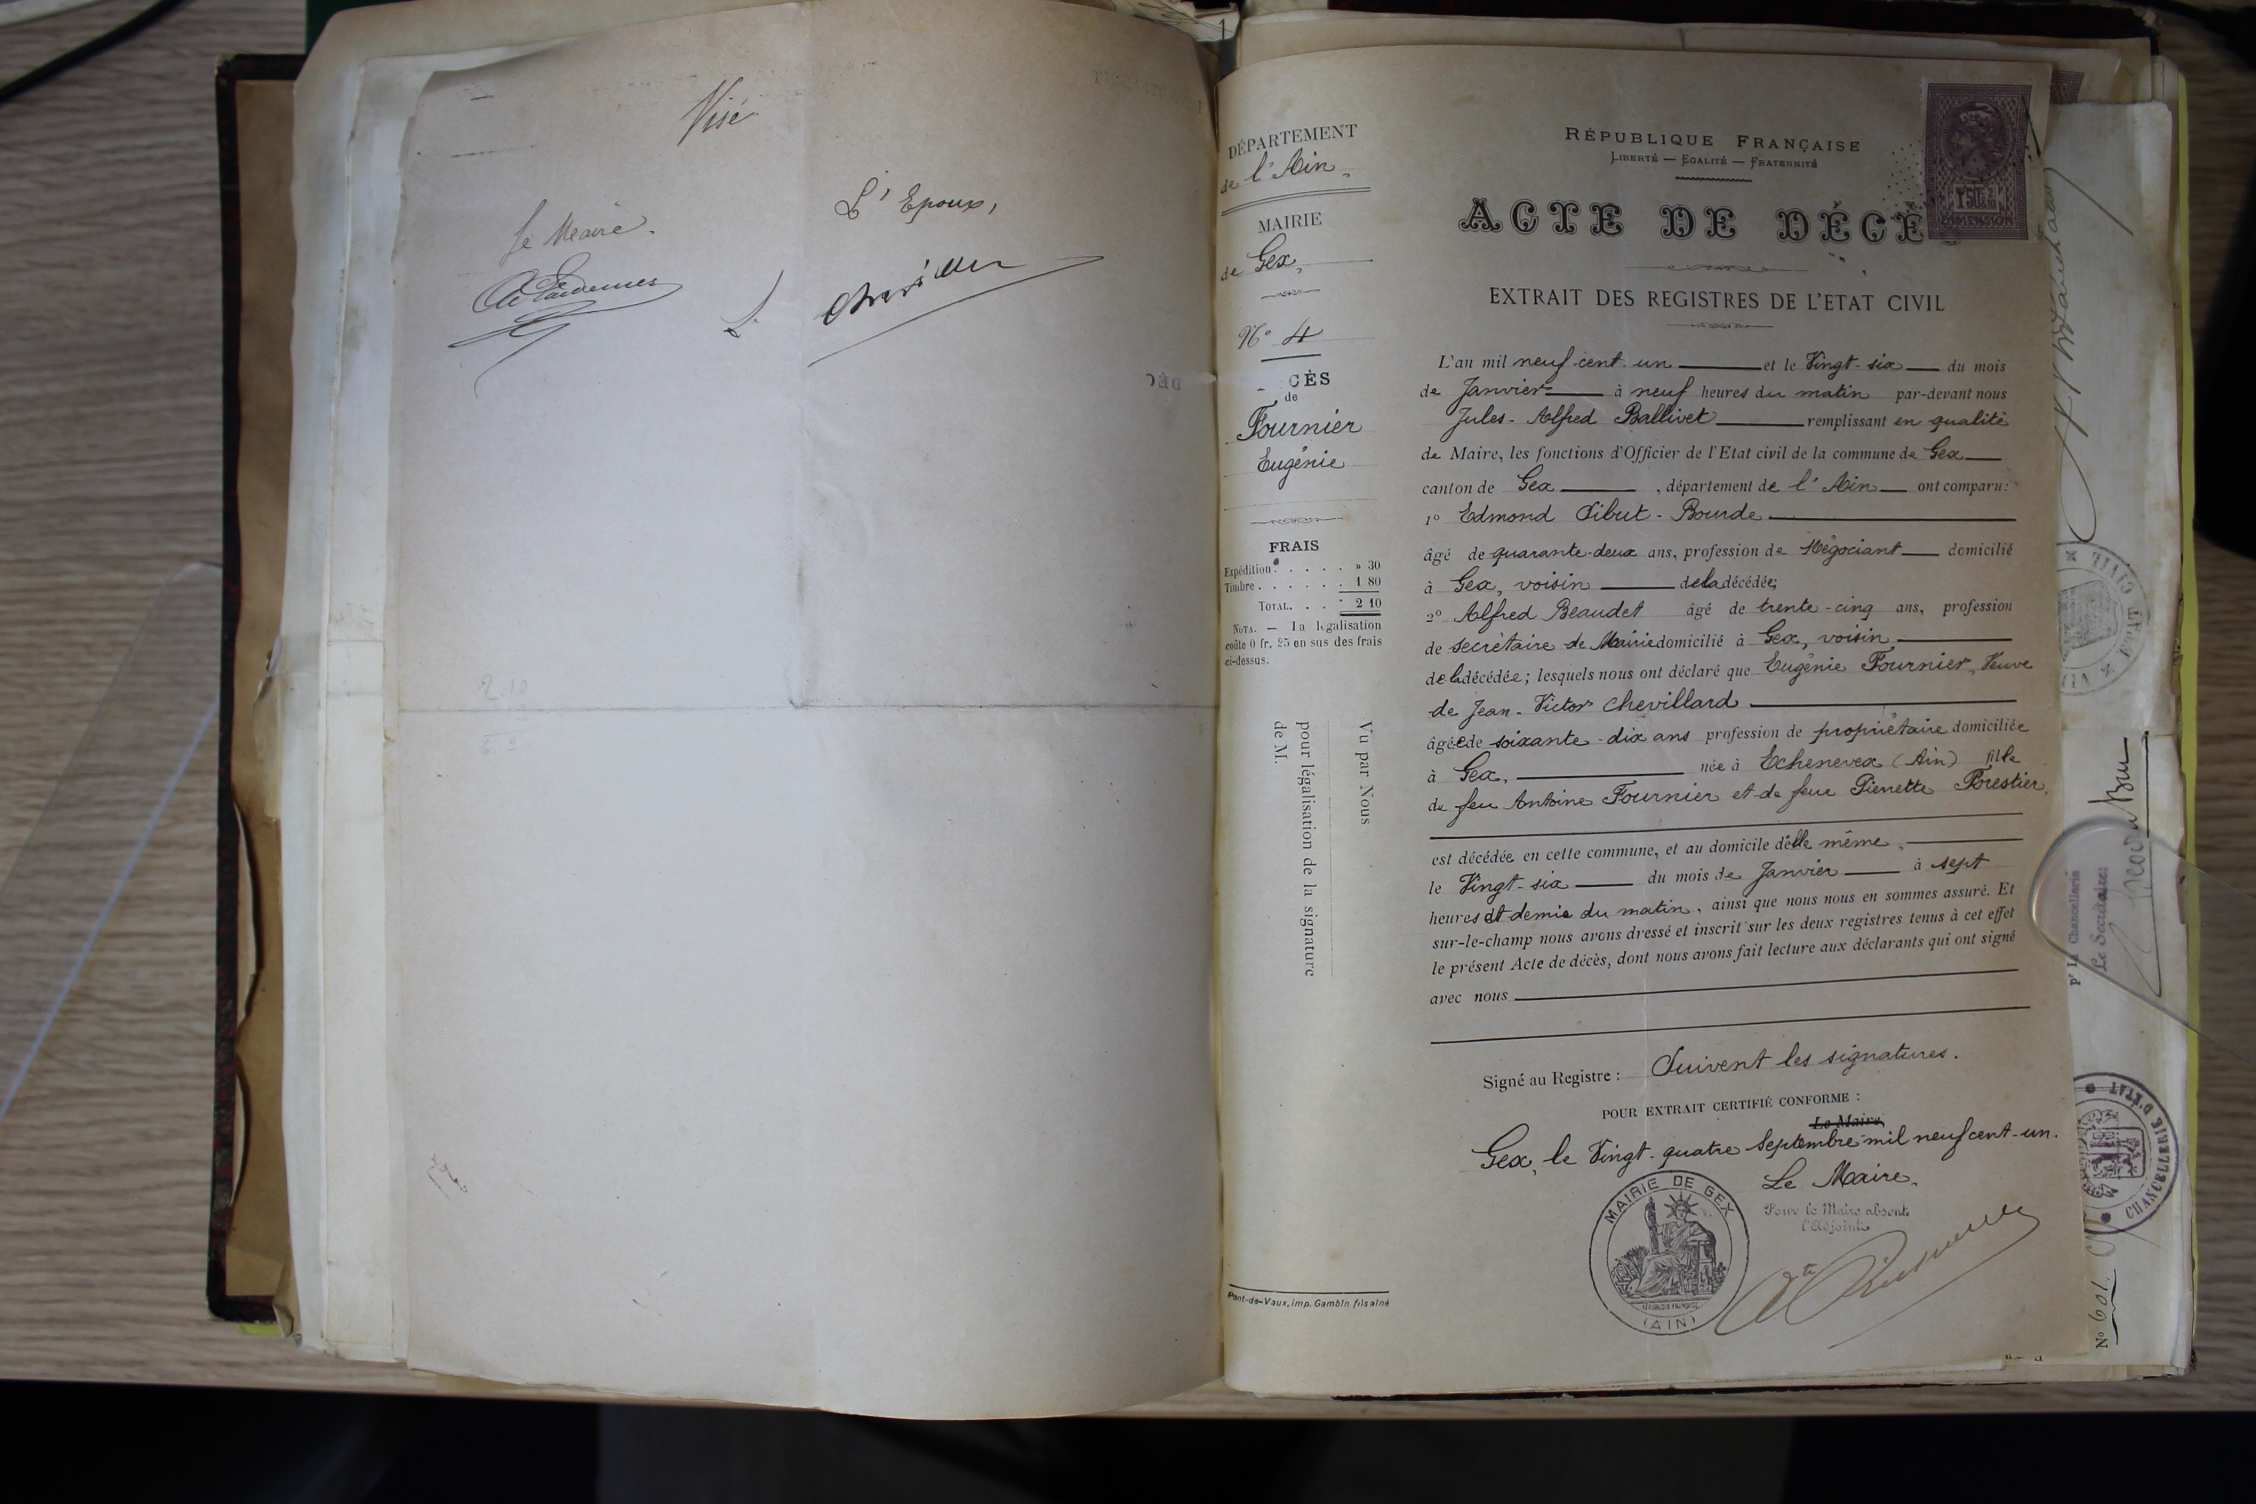 Visé
L' Epoux,
Le Maire.
DÉPARTEMENT
de l'Ain
MAIRIE
de Gex
N° 4
CÈS
de
Fournier
Eugénie
FRAIS
Expédition . . . . . » 30
Timbre . . . . . . 1 80
TOTAL. . . . 2 10
NOTA. — La légalisation
coûte 0 fr. 25 en sus des frais
ci-dessus.
Vu par Nous
pour légalisation de la signature
de M.
Pont-de-Vaux, imp. Gambin fils aîné
RÉPUBLIQUE FRANÇAISE
LIBERTÉ — EGALITÉ — FRATERNITÉ
ACTE DE DÉCÈ
EXTRAIT DES REGISTRES DE L'ETAT CIVIL
L'an mil neuf cent un et le Vingt-six du mois
de Janvier à neuf heures du matin par-devant nous
Jules-Alfred Ballivet remplissant en qualité
de Maire, les fonctions d'Officier de l'Etat civil de la commune de Gex
canton de Gex, département de l'Ain ont comparu:
1° Edmond Sibut-Bourde
âgé de quarante-deux ans, profession de Négociant domicilié
à Gex, voisin de la décédée;
2° Alfred Beaudet âgé de trente-cinq ans, profession
de secrétaire de Mairie domicilié à Gex, voisin
de la décédée; lesquels nous ont déclaré que Eugénie Fournier, Veuve
de Jean-Victor Chevillard
âgée de soixante-dix ans profession de propriétaire domiciliée
à Gex, née à Echenevex (Ain) fille
de feu Antoine Fournier et de feue Pierrette Forestier,
est décédée en cette commune, et au domicile d'elle même,
le Vingt-six du mois de Janvier à sept
heures et demie du matin, ainsi que nous nous en sommes assuré. Et
sur-le-champ nous avons dressé et inscrit sur les deux registres tenus à cet effet
le présent Acte de décès, dont nous avons fait lecture aux déclarants qui ont signé
avec nous
Signé au Registre : Suivent les signatures.
POUR EXTRAIT CERTIFIÉ CONFORME :
Le Maire,
Gex, le Vingt-quatre Septembre mil neuf cent-un.
Le Maire,
Pour le Maire absent
l'Adjoint
MAIRIE DE GEX
(AIN)
pr La Chancellerie
Le Secrétaire:
CHANCELLERIE D'ETAT
N° 601.